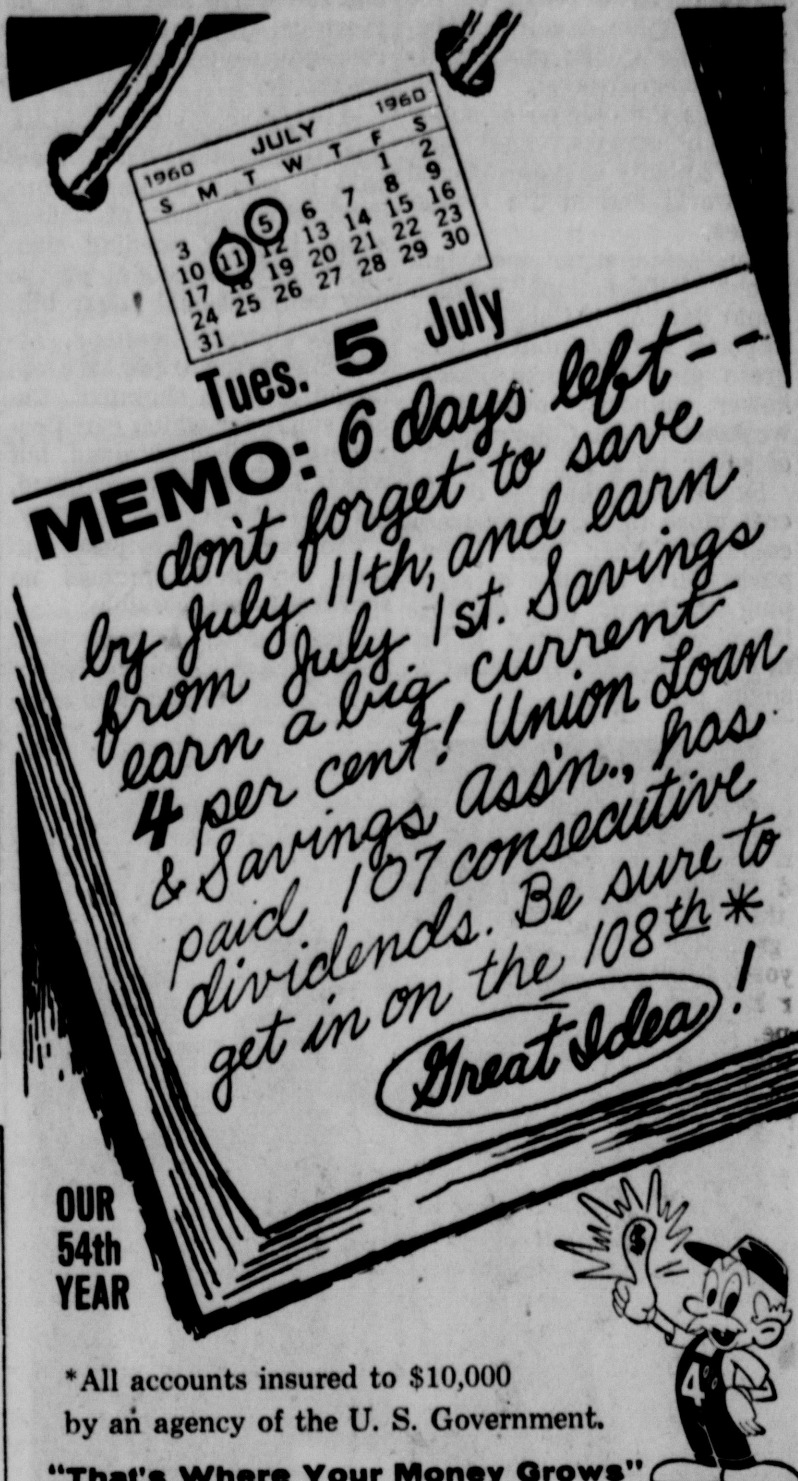 1960 JULY 1960
S M T W T F S
1 2
3 5 6 7 8 9
10 11 12 13 14 15 16
17 18 19 20 21 22 23
24 25 26 27 28 29 30
31
Tues. 5 July
MEMO: 6 days left--
don't forget to save
by July 11th, and earn
from July 1st. Savings
earn a big current
4 per cent! Union Loan
& Savings Ass'n., has
paid 107 consecutive
dividends. Be sure to
get in on the 108th *
Great Idea!
OUR
54th
YEAR
$
4
*All accounts insured to $10,000
by an agency of the U. S. Government.
"That's Where Your Money Grows"